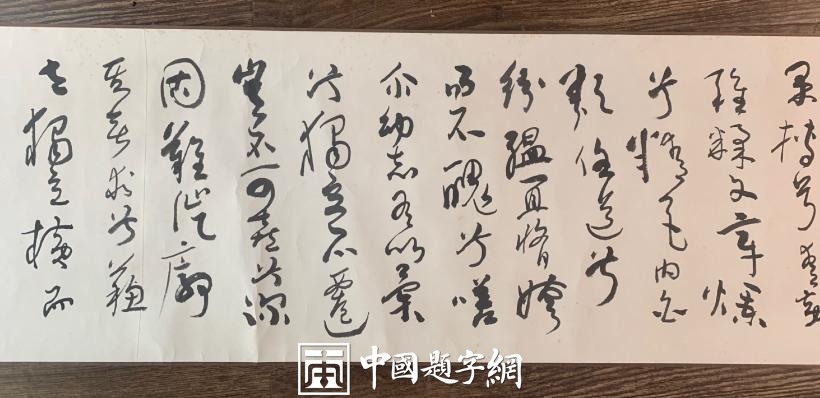 果摶兮青黃
雜糅文章爛
兮精色內白
類任道兮
紛縕宜脩姱
而不醜兮嗟
尒幼志有以異
兮獨立不遷
豈不可喜兮深
固難徙廓
其無求兮蘇
世獨立橫而
中國題字網